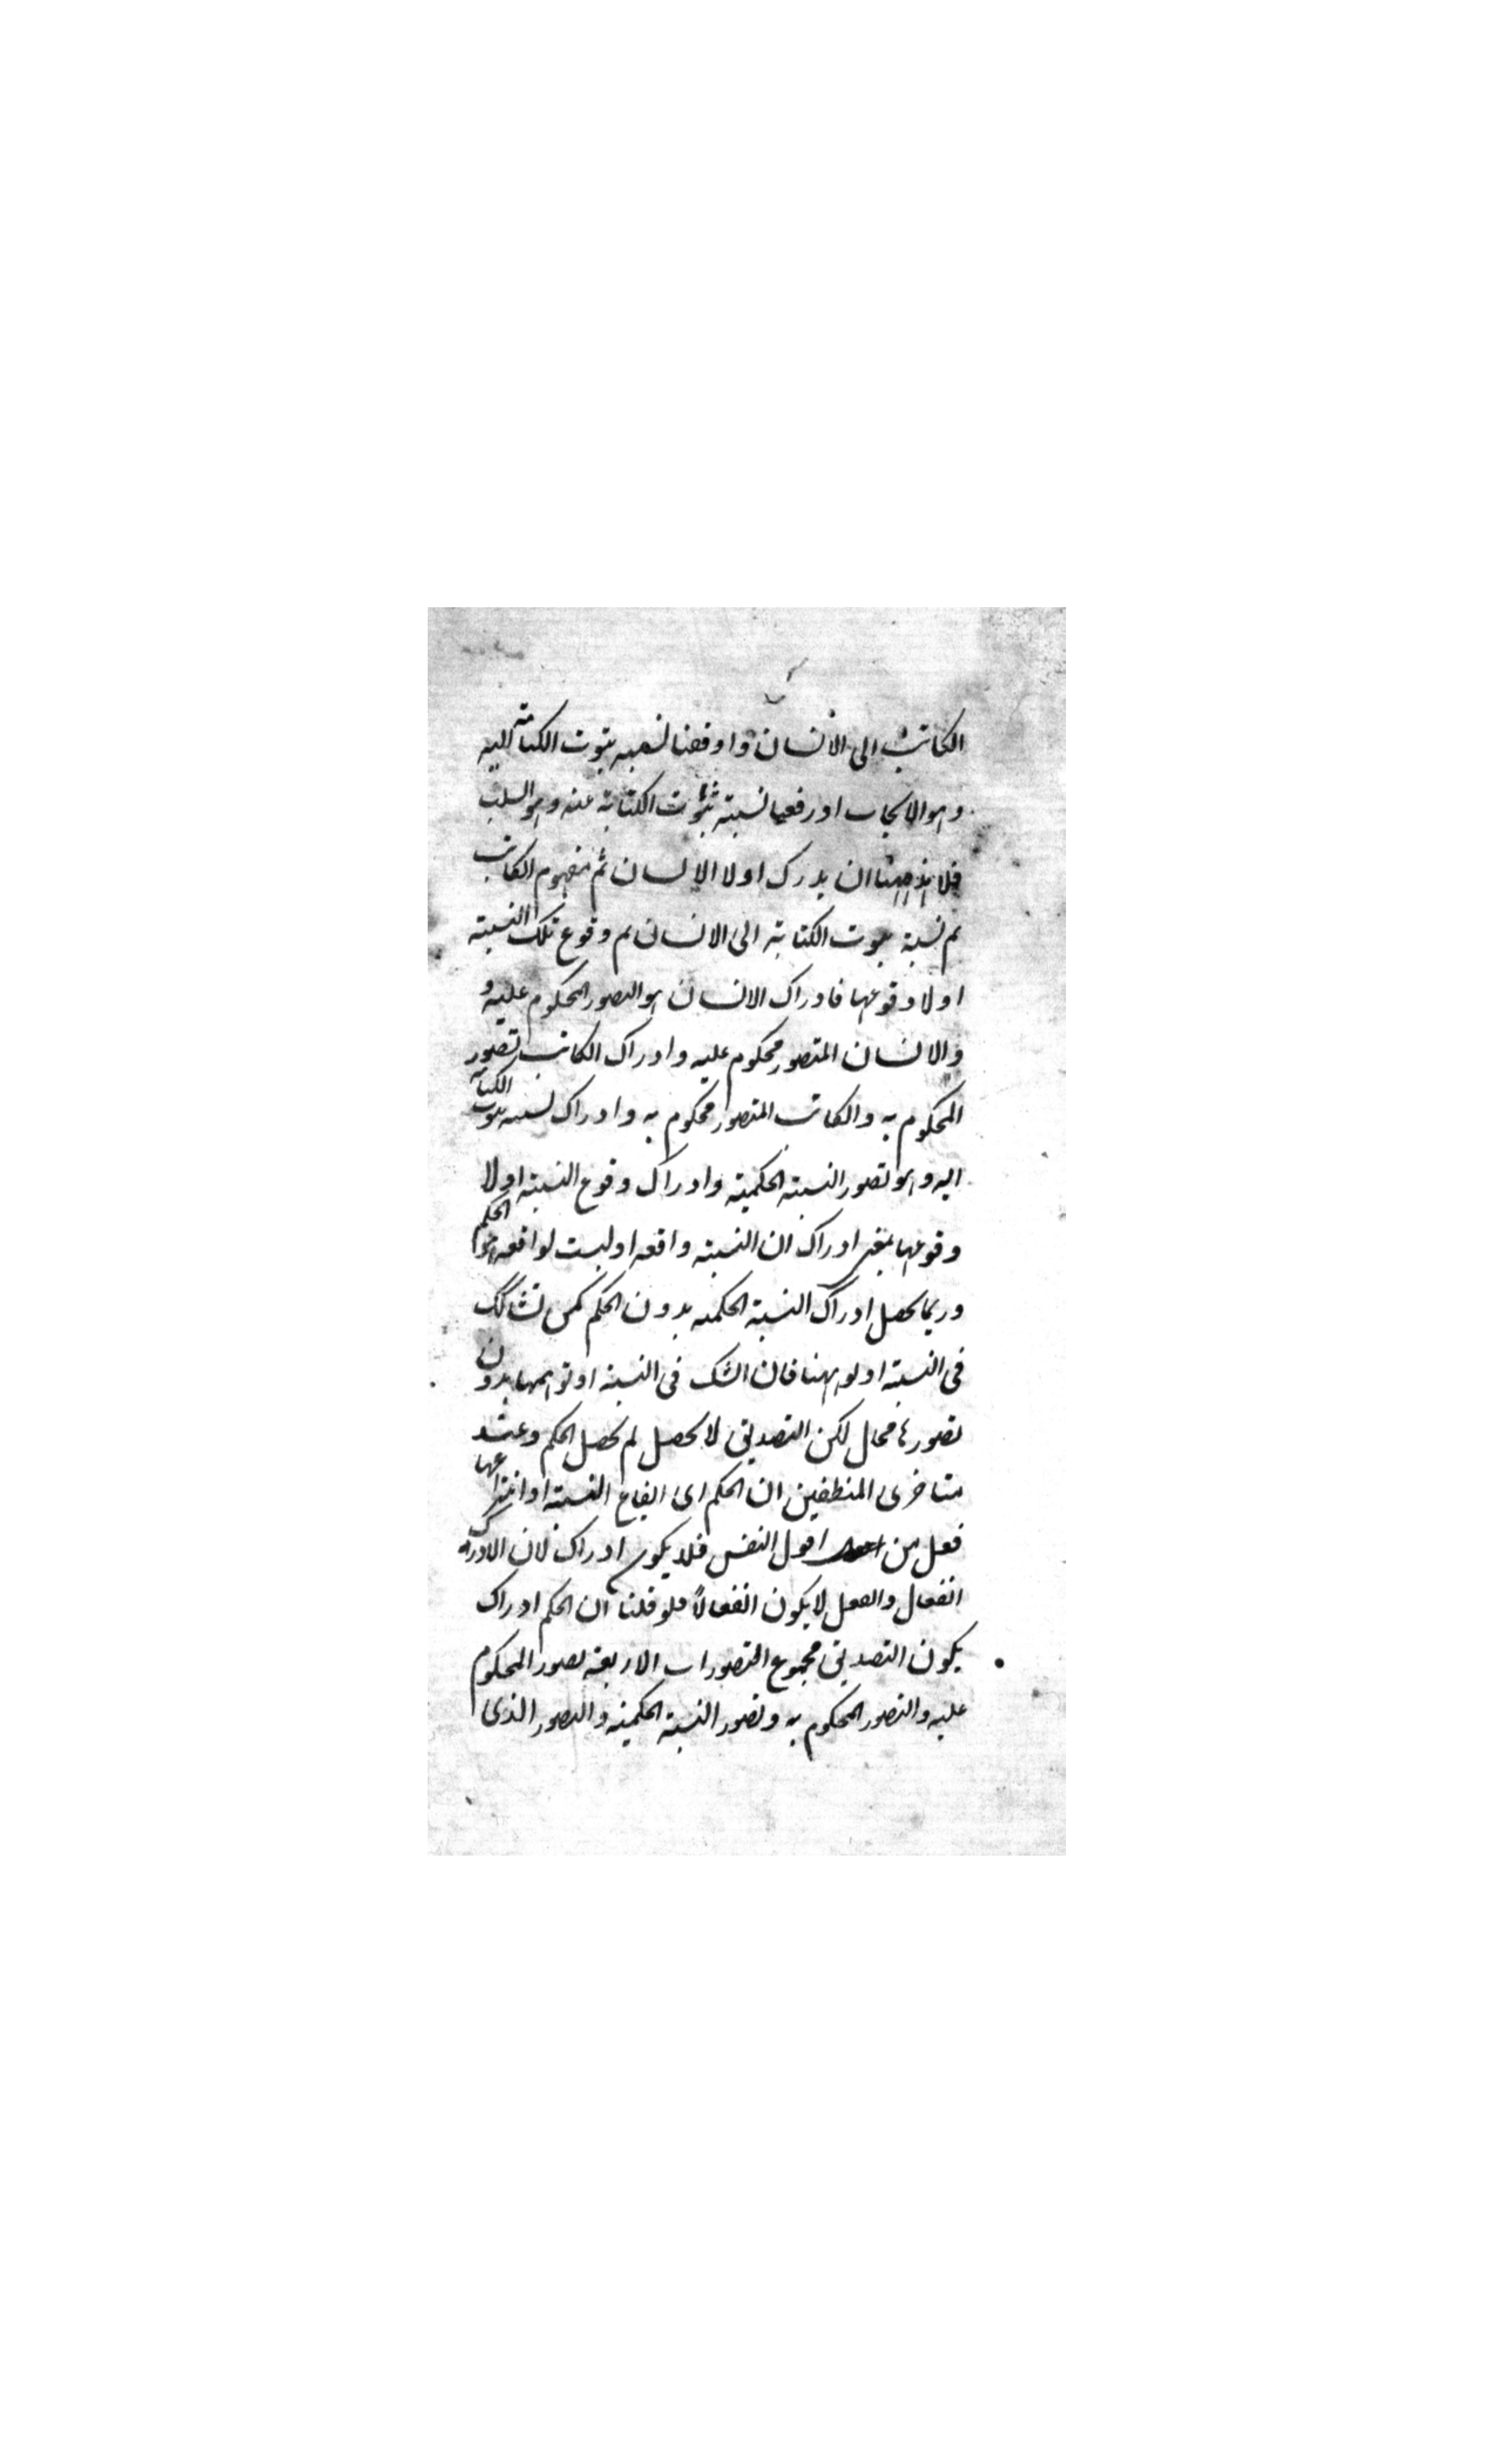 الكاتب الى الانسان واوقعنا نسبة ثبوت الكتابة اليه
وهو الايجاب او رفعنا نسبة ثبوت الكتابة عنه وهو السلب
فلا بد ههنا ان يدرك اولا الانسان ثم مفهوم الكاتب
ثم نسبة ثبوت الكتابة الى الانسان ثم وقوع تلك النسبة
اولا وقوعها فادراك الانسان هو التصور المحكوم عليه و
والانسان المتصور محكوم عليه وادراك الكاتب تصور
المحكوم به والكاتب المتصور محكوم به وادراك نسبة ثبوت الكتابة
اليه وهو تصور النسبة الحكمية وادراك وقوع النسبة اولا
وقوعها بمعنى ادراك ان النسبة واقعة او ليست بواقعة هو الحكم
وربما يحصل ادراك النسبة الحكمية بدون الحكم كمن تشكك
فى النسبة او توهمها فان الشك فى النسبة او توهمها بدون
تصورها محال لكن التصديق لا يحصل لم يحصل الحكم وعند
متاخرى المنطقين ان الحكم اى ايقاع النسبة او انتزاعها
فعل من افعال النفس فلا يكون ادراك لان الادراك
انفعال والفعل لا يكون انفعالاً فلو قلنا ان الحكم ادراك
يكون التصديق مجموع التصورات الاربعة تصور المحكوم
عليه والتصور المحكوم به وتصور النسبة الحكمية والتصور الذى